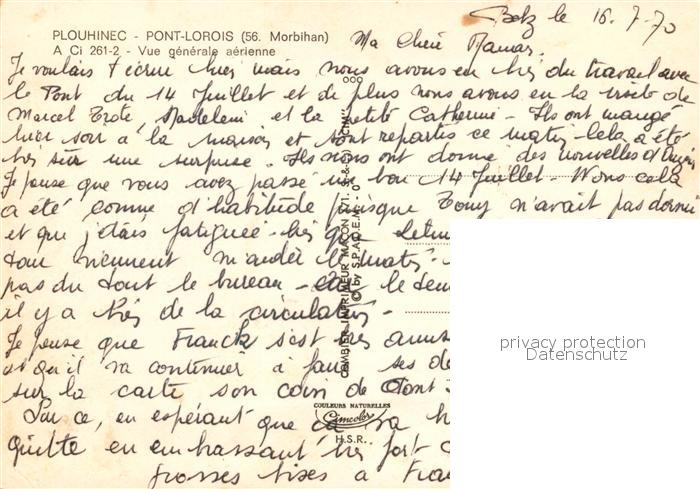 PLOUHINEC - PONT-LOROIS (56. Morbihan)
A Ci 261-2 - Vue générale aérienne
Belz le 16-7-70
Ma Chère Maman,
Je voulais t'écrire hier mais nous avons eu très du travail avec
le Pont du 14 Juillet et de plus nous avons eu la visite de
Marcel Madeleine et la petite Catherine - Ils ont mangé
hier soir à la maison et sont repartis ce matin. Cela a été
très sur une surprise. Ils nous ont donné des nouvelles d'
Je pense que vous avez passé un bon 14 Juillet - Nous cela
a été comme d'habitude puisque Tony n'avait pas dormi
et que j'étais fatiguée
viennent le matin
pas du tout le bureau - le
il y a très de la circulation -
Je pense que Franck s'est très
et qu'il va continuer à faire ses
sur la carte son coin de
Sur ce, en espérant que va
quitte en embrassant très fort
grosses bises à
COMBIER IMPRIMEUR MACON
© by S.P.A.D.E.M.
COULEURS NATURELLES
Cimcolor
H.S.R.
privacy protection
Datenschutz